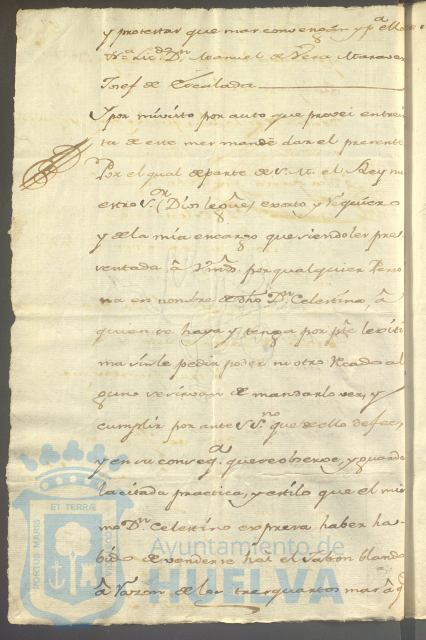 y protestar que mas convengan y pª ello
Josef de Escalada
Y por mi visto por auto que provei en trein
ta de este mes mandé dar el presente
Por el qual de parte de S. M. el Rey nu
estro Sor (Dios le gue) exorto y requiero
y de la mia encargo que siendoles pres
sentada â Vmds. por qualquier Perso
na en nombre de dho Dn Celestino, â
quien se haya y tenga por pte lexiti
ma sin le pedir poder ni otro Recado al
guno se sirvan de mandarlo ver, y
cumplir por ante SSno que de ello de fee,
y en su conseqª que se observe, y guarde
la citada practica, y estilo que el mis
mo Dn Celestino expresa haber ha-
bido de venderse hâl el Jabon blando
â razon de los tres quartos mas â q
PORTUS MARIS ET TERRÆ CUSTODIA
Ayuntamiento de
HUELVA